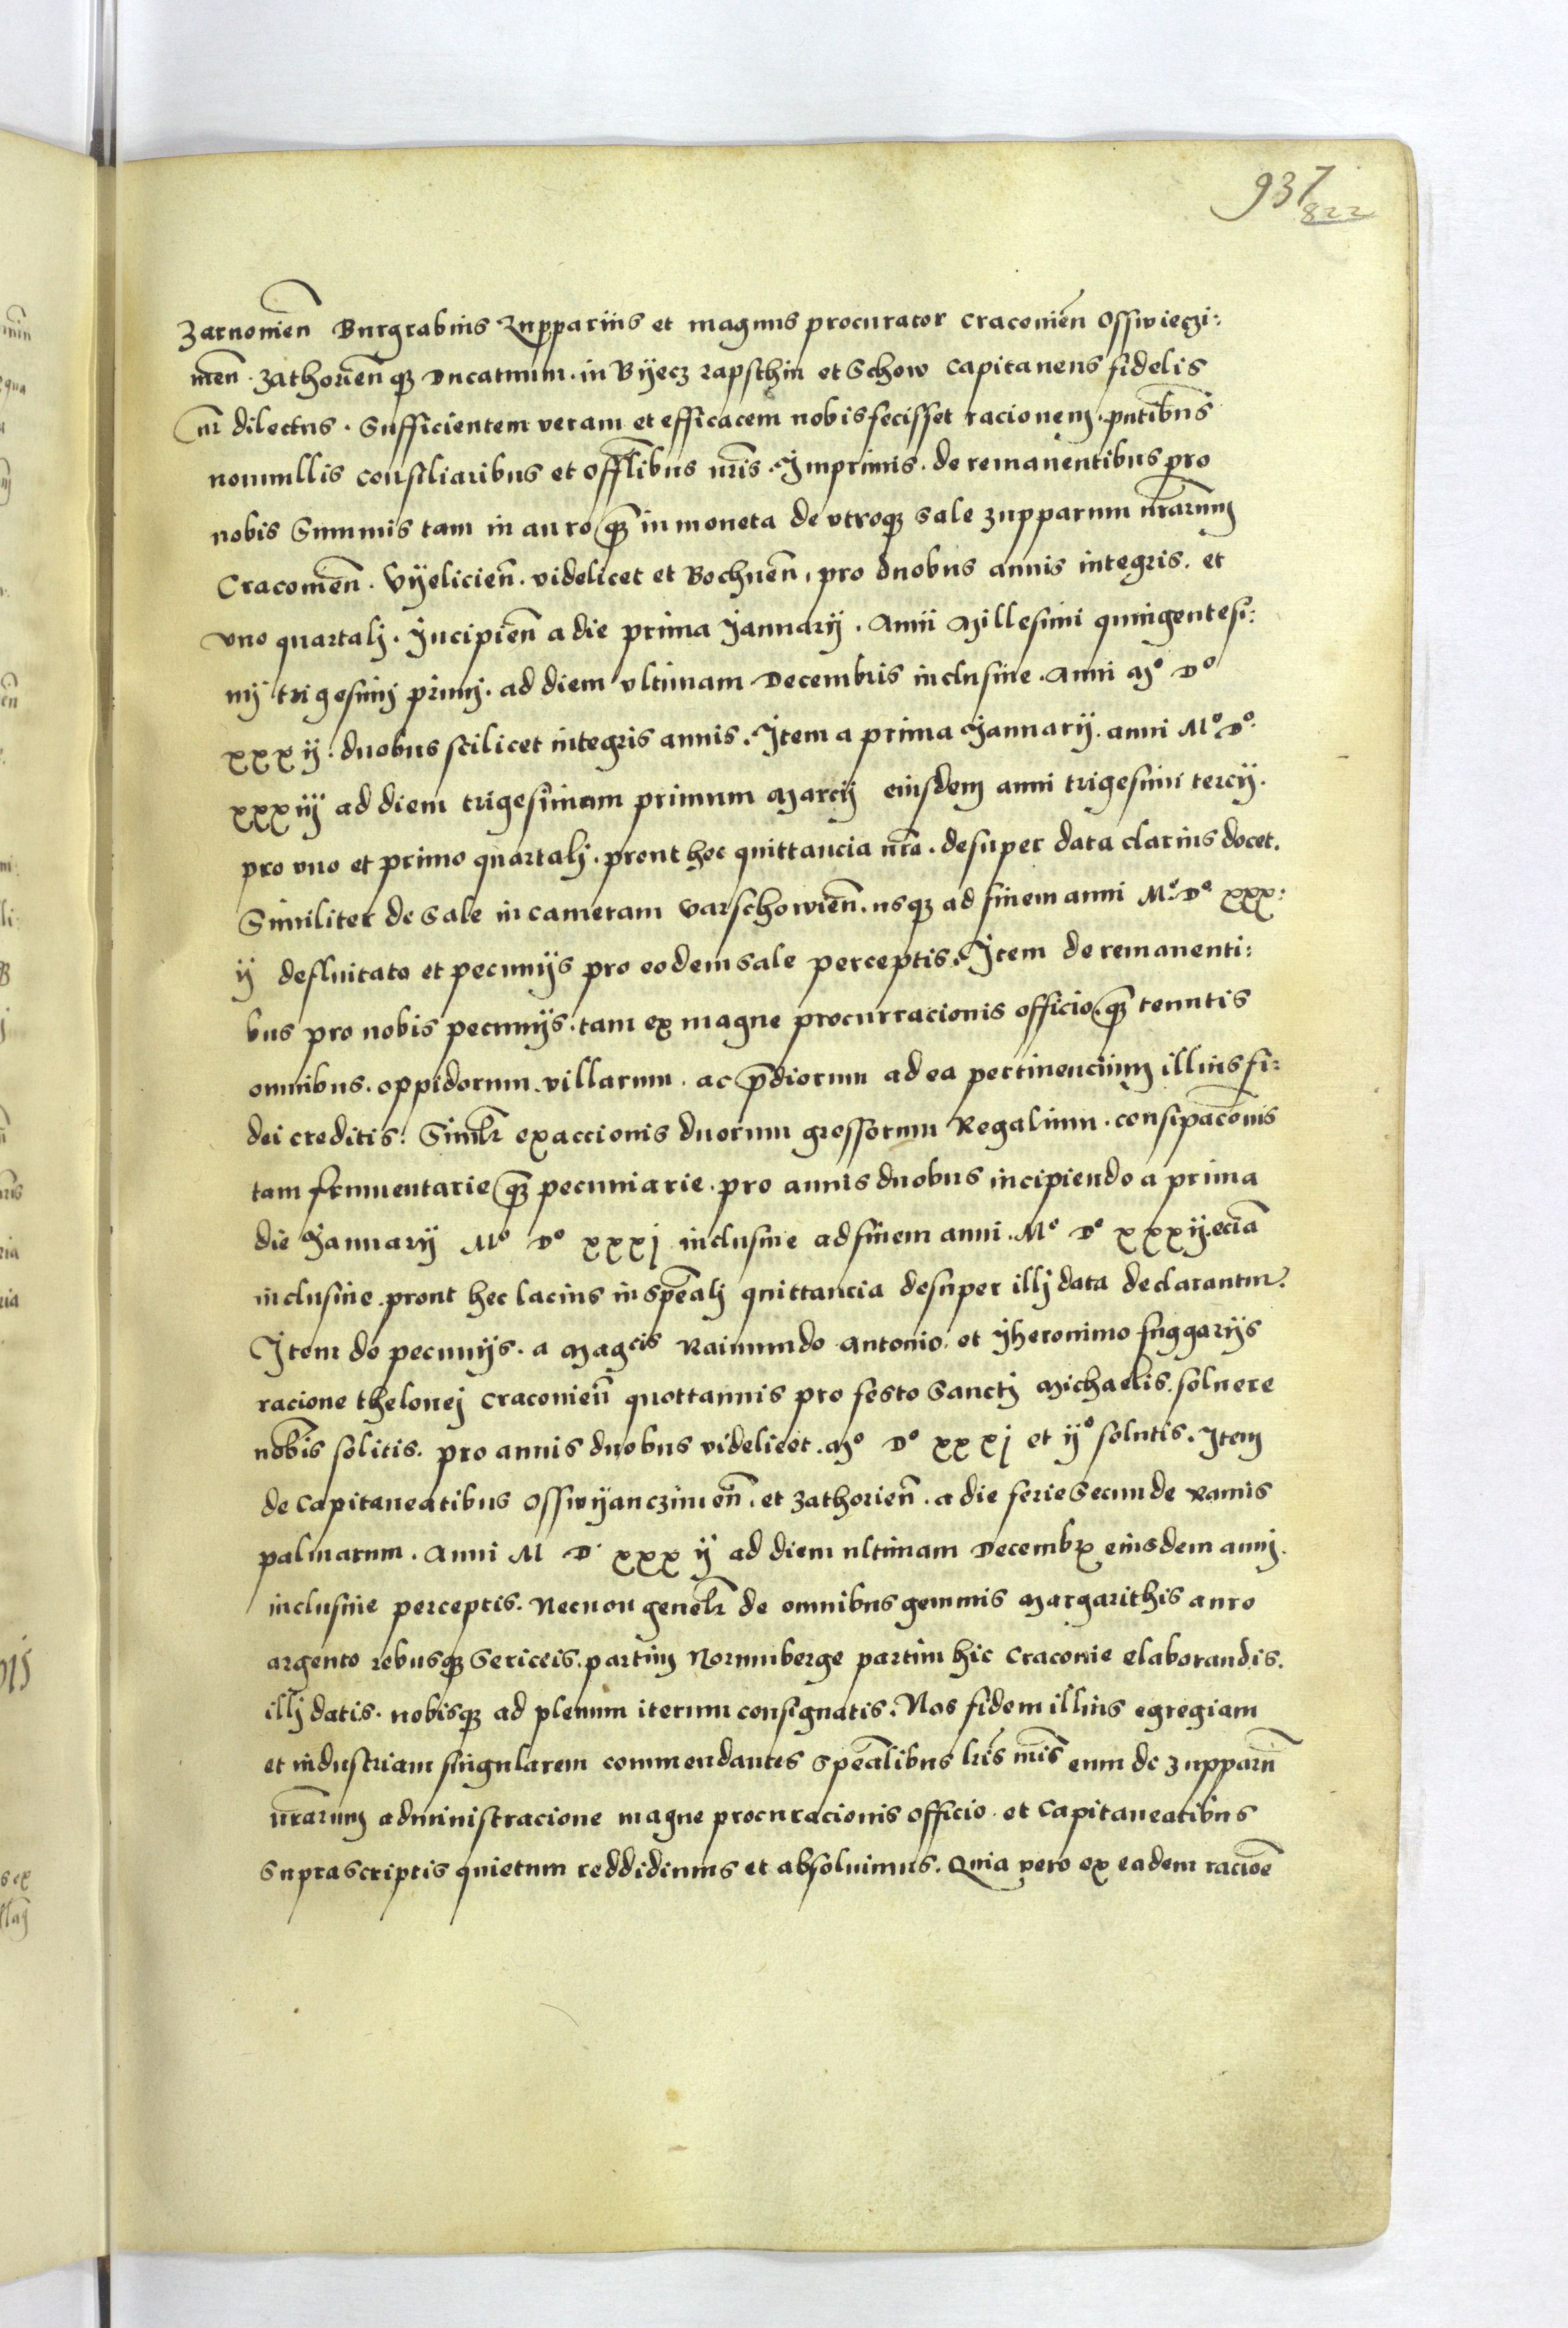 937
822
Zarnowien̄ Burgrabius Zupparius et magnus procurator Cracowien̄ Osswieczi:
men̄. Zathorien̄ qꝫ Ducatuum. in Byecz rapsthin et Schow Capitaneus fidelis
nr̄ dilectus. Sufficientem veram et efficacem nobis fecisset racionem. pn̄tibus
nonnullis consiliaribus et offl̄ibus nr̄is. Imprimis. de remanentibus pro
nobis Summis tam in auro qꝫ in moneta de vtroqꝫ sale zupparum nr̄arum
Cracowien̄. Vyelicien̄. videlicet et Bochnen̄, pro duobus annis integris. et
vno quartalj. Incipien̄ a die prima Januarij. Anni Millesimi quingentesi:
mj trigesimj primj. ad diem vltimam Decembris inclusiue. Anni Mº Dº
xxxij. duobus scilicet integris annis. Item a prima Januarij. anni Mº. Dº.
xxxiij ad diem trigesimum primum Marcij eiusdem anni trigesimi tercij.
pro vno et primo quartalj. prout hec quittancia nr̄a. desuper data clarius docet.
Similiter de Sale in cameram Varschowien̄. usqꝫ ad finem anni Mº. Dº xxx:
ij defluitato et pecunijs pro eodem sale perceptis. Item de remanenti:
bus pro nobis pecunijs. tam ex magne procurracionis officio. qꝫ tenutis
omnibus. oppidorum villarum. ac p̄diorum ad ea pertinencium illius fi:
dei creditis. Simlr̄ exaccionis duorum grossorum Regalium. consipac̄onis
tam frumentarie qꝫ pecuniarie. pro annis duobus incipiendo a prima
die Januarij Mº Dº xxxj inclusiue ad finem anni. Mº Dº xxxij. ecia᷈
inclusiue. prout hec lacius in spēalj quittancia desuper illj data declarantur.
Item de pecunijs. a Magc̄is Raimundo Antonio. et Yheronimo fuggarijs
racione thelonej Cracowien̄ quottannis pro festo Sanctj Michaelis. soluere
nobis solitis. pro annis duobus videlicet. Mº Dº xxxj et ijº solutis. Item
de Capitaneatibus Osswyanczimen̄. et Zathorien̄. a die ferie Secunde Ramis
palmarum. Anni M D. xxxij ad diem ultimam Decembꝝ eiusdem annj.
inclusiue perceptis. Necnon genelr̄ de omnibus gemmis Margarithis auro
argento rebusqꝫ Sericeis. partim Norumberge partim hic Cracowie elaborandis.
illj datis. nobisqꝫ ad plenum iterum consignatis. Nos fidem illius egregiam
et industriam singularem commendantes Spēalibus lr̄is nr̄is eum de zupparu᷈
nr̄arum administracione magne procuracionis officio. et Capitaneatibus
Suprascriptis quietum reddidimus et absoluimus. Quia vero ex eadem racioe᷈